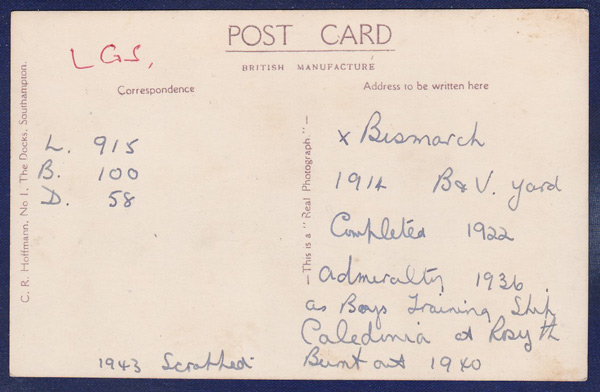 POST CARD
BRITISH MANUFACTURE
LGS,
Correspondence
Address to be written here
C. R. Hoffmann, No 1, The Docks, Southampton.
L. 915
B. 100
D. 58
1943 Scrapped
—This is a "Real Photograph."—
x Bismarch
1914 B&V. yard
Completed 1922
Admiralty 1936
as Boys Training Ship
Caledonia at Rosyth
Burnt out 1940